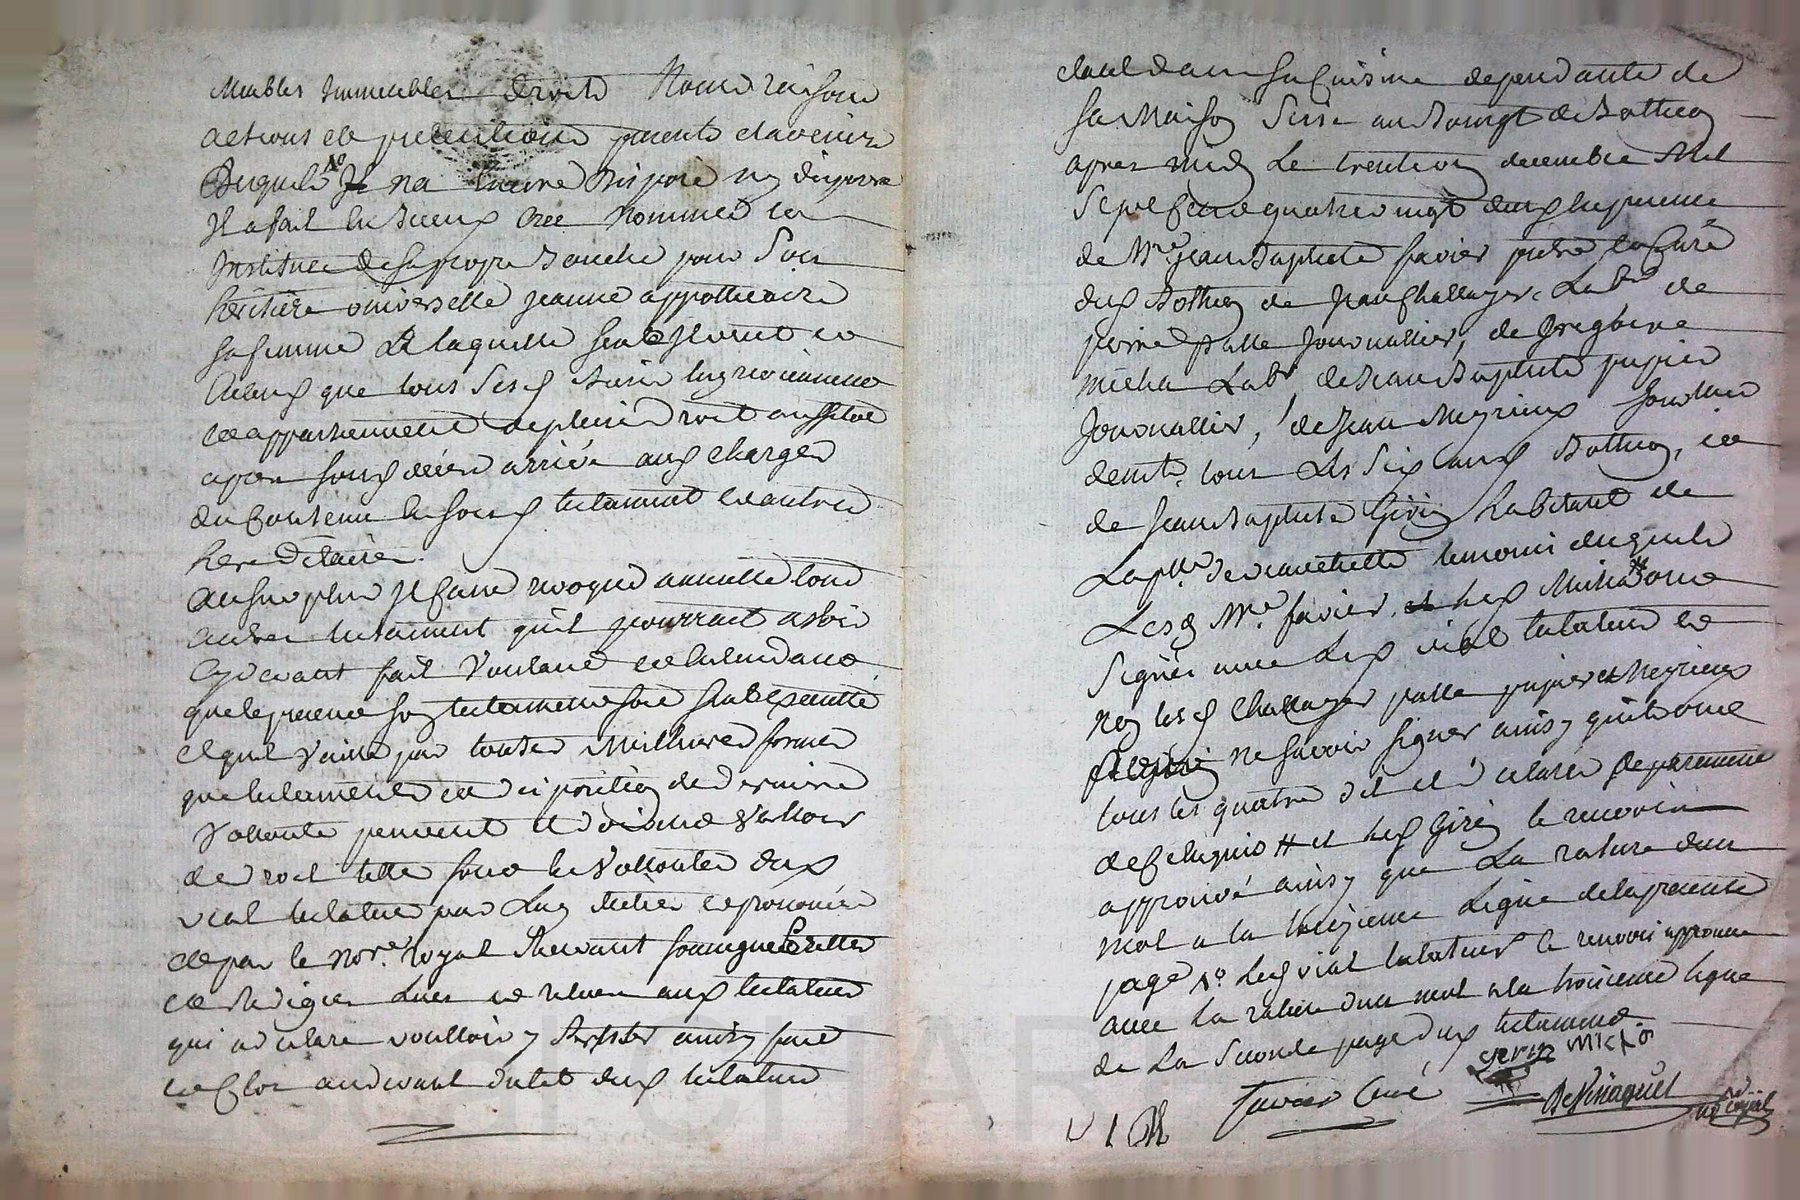 Meubles Immeubles droits Noms raisons
actions et pretentions presents et avenirs
Desquels Il na encore disposé ny dispose
Il a fait creé nommé et
Institué de sa propre bouche pour Son
héritière universelle jeanne appothicaire
sa femme a laquelle
que tous Sesd biens luy reviennent
et appartiennent de plein droit aussitot
apres sond décéd arrivé aux charges
du Contenu en son testament et autres
hereditaires
Au surplus Il casse revoque annulle tous
autres testaments quil pourrait avoir
cydevant fait Voulant et entendant
que le present son testament soit seul executé
et quil vaille par toutes Meilleures formes
que testaments et disposition de derniere
Vollonté peuvent et doivent Valloir
de droit telle sont les Vollontés dud
vial testateur par Luy dictées et prononcées
et par le Nore royal Recevant soussigné ecrittes
et redigées Lues et relues aud testateur
qui a declaré voulloir y persister ainsy fait
et Clos audevant du lit dud testateur
etant dans sa Cuisine dependante de
sa Maison Sise au bourgt de Bothéon
apres midy Le trentieme decembre Mil
Sept Cent quatrevingt deux En presence
de Mre Jean Baptiste favier pretre et Curé
dud Bothéon de Jean Challayer Labr de
pierre palle Journallier, de Gregoire
micha Labr de Jean Baptiste pupier
Journallier, de Jean Meyrieux
tous Les Six aud Bothéon, et
de Jean Baptiste Girin habitant de
La plle temoins desquels
Lesd Mre favier, et led Micha ont
Signés avec Led vial testateur et
Non lesd Challayer palle pupier et Meyrieux
ne Savoir signer ainsy quils ont
tous les quatre dit et déclarés
de Ce Enquis # et led Girin le renvoi
approuvé ainsy que La rature dun
mot a la ligne de la presente
page led vial testateur le renvoi approuvé
avec la rature dun mot a la troisieme ligne
de La Seconde page dud testament
girin Micha
Vial favier Curé